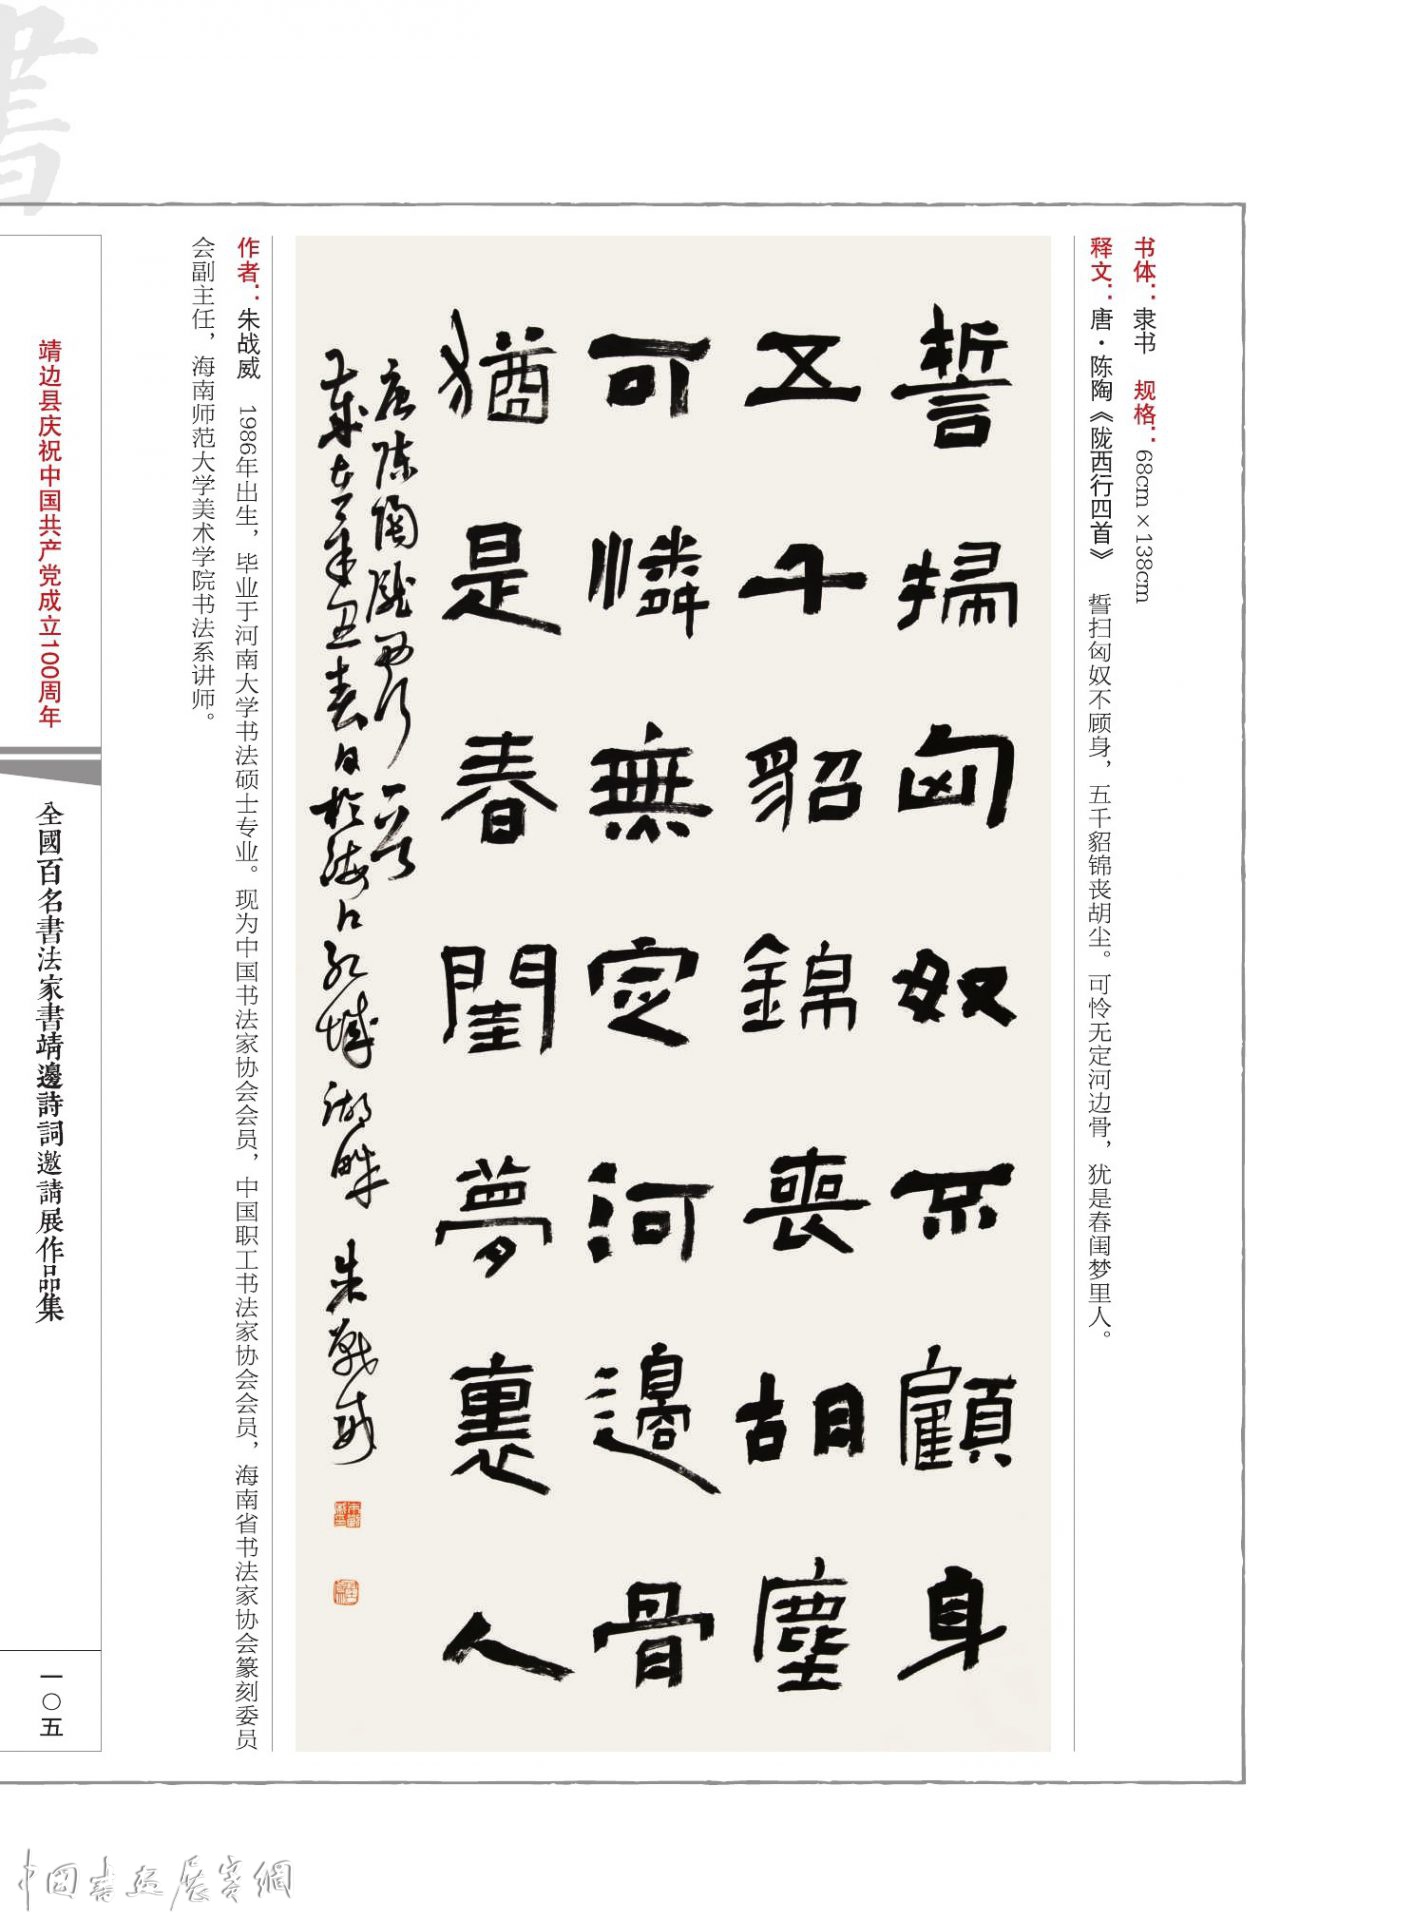 書
书体：隶书　规格：68cm×138cm
释文：唐·陈陶《陇西行四首》　誓扫匈奴不顾身，五千貂锦丧胡尘。可怜无定河边骨，犹是春闺梦里人。
誓掃匈奴不顧身
五千貂錦喪胡塵
可憐無定河邊骨
猶是春閨夢裏人
唐陳陶隴西行一首
歲在辛丑春日於海口紅城湖畔 朱戰威
作者：朱战威　1986年出生，毕业于河南大学书法硕士专业。现为中国书法家协会会员，中国职工书法家协会会员，海南省书法家协会篆刻委员
会副主任，海南师范大学美术学院书法系讲师。
靖边县庆祝中国共产党成立100周年
全國百名書法家書靖邊詩詞邀請展作品集
一〇五
中國書畫展賽網